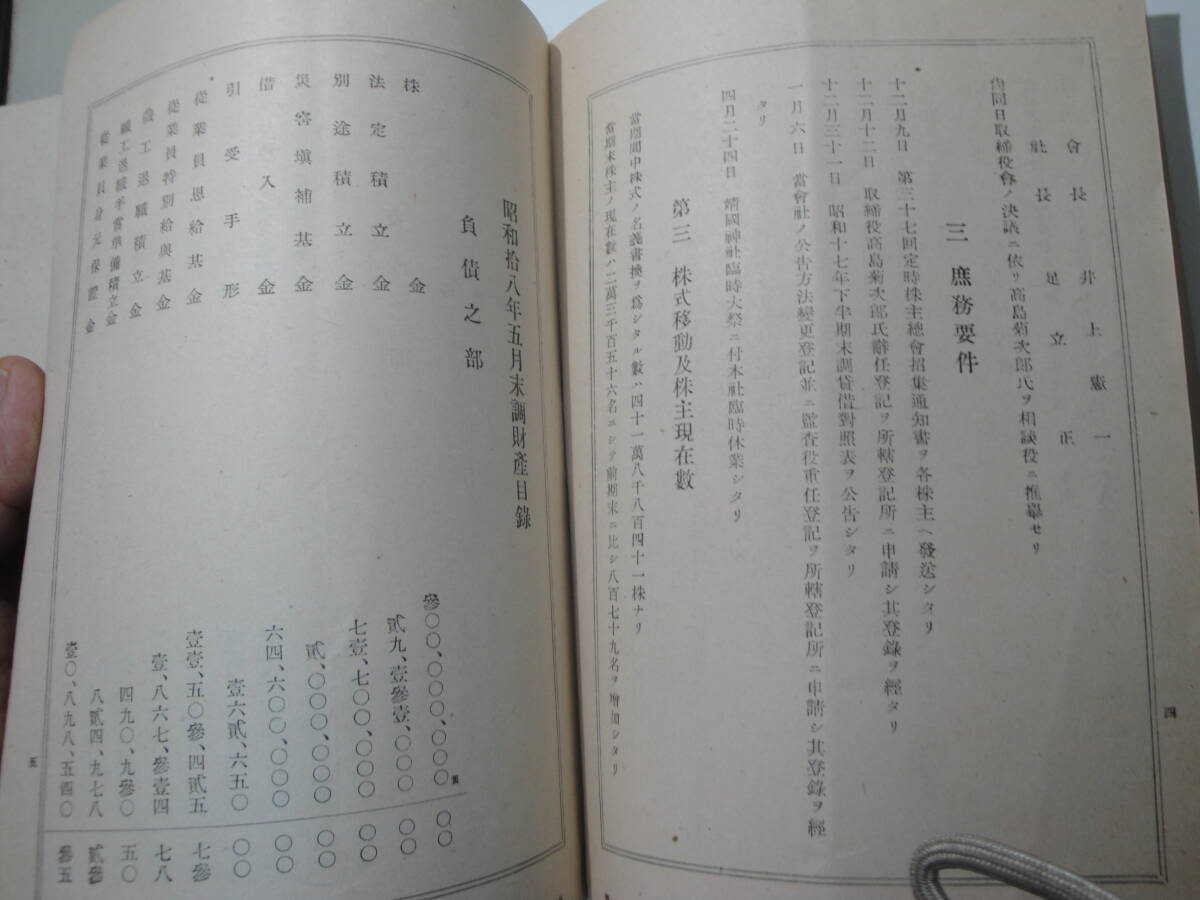 會長 井上憲一
社長 足立正
尙同日取締役會ノ決議ニ依リ高島菊次郎氏ヲ相談役ニ推擧セリ
三 庶務要件
十二月九日 第三十七回定時株主總會招集通知書ヲ各株主ヘ發送シタリ
十二月十二日 取締役高島菊次郎氏辭任登記ヲ所轄登記所ニ申請シ其登錄ヲ經タリ
十二月三十一日 昭和十七年下半期末調貸借對照表ヲ公告シタリ
一月六日 當會社ノ公告方法變更登記並ニ監査役重任登記ヲ所轄登記所ニ申請シ其登錄ヲ經
タリ
四月二十四日 靖國神社臨時大祭ニ付本社臨時休業シタリ
第三 株式移動及株主現在數
當期間中株式ノ名義書換ヲ爲シタル數ハ四十一萬八千八百四十一株ナリ
當期末株主ノ現在數ハ二萬三千百五十六名ニシテ前期末ニ比シ八百七十九名ヲ增加シタリ
四
昭和拾八年五月末調財產目錄
負債之部
株金 參〇〇、〇〇〇、〇〇〇圓 〇〇
法定積立金 貳九、壹參壹、〇〇〇 〇〇
別途積立金 七壹、七〇〇、〇〇〇 〇〇
災害塡補基金 貳、〇〇〇、〇〇〇 〇〇
借入金 六四、六〇〇、〇〇〇 〇〇
引受手形 壹六貳、六五〇 〇〇
從業員恩給基金 壹壹、五〇參、四貳五 七參
從業員特別給與基金 壹、八六七、參壹四 七八
職工退職積立金 四九〇、九參〇 五〇
職工退職手當準備積立金 八貳四、九七八 貳參
從業員身元保證金 壹〇、八九八、五四〇 參五
五